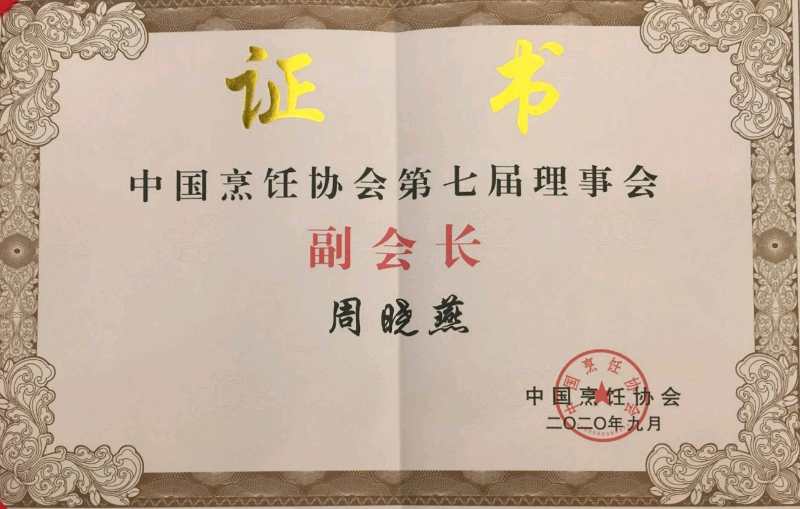 证 书
中国烹饪协会第七届理事会
副会长
周晓燕
中国烹饪协会
中国烹饪协会
二〇二〇年九月